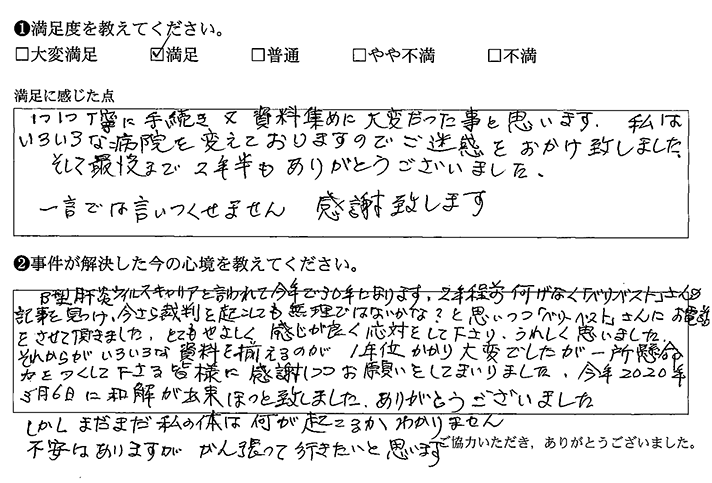 ❶満足度を教えてください。
□大変満足 ☑満足 □普通 □やや不満 □不満
満足に感じた点
1つ1つ丁寧に手続き又資料集めに大変だった事と思います。私は
いろいろな病院を変えておりますのでご迷惑をおかけ致しました。
そして最後まで2年半もありがとうございました。
一言では言いつくせません 感謝致します
❷事件が解決した今の心境を教えてください。
B型肝炎ウィルスキャリアと言われて今年で30年となります。2年程前何げなく「ベリーベスト」さんの
記事を見つけ、今さら裁判を起こしても無理ではないかな?と思いつつ「ベリーベスト」さんにお電話
をさせて頂きました。とてもやさしく感じが良く応対をして下さり、うれしく思いました。
それからがいろいろな資料を揃えるのが1年位かかり大変でしたが一所懸命
力をつくして下さる皆様に感謝しつつお願いをしてまいりました。今年2020年
5月6日に和解が出来ほっと致しました。ありがとうございました
しかしまだまだ私の体は何が起こるかわかりません
不安はありますががん張って行きたいと思います
ご協力いただき、ありがとうございました。